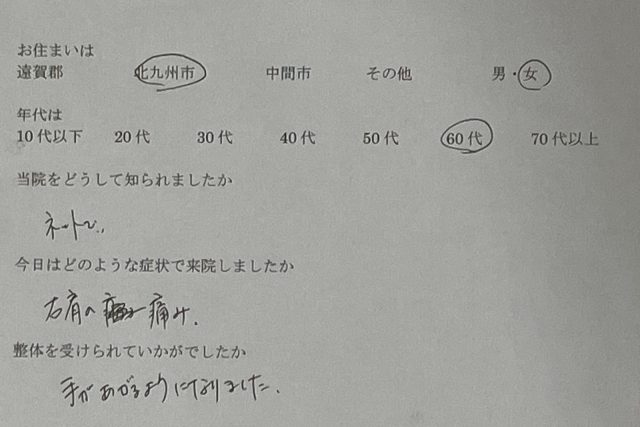 お住まいは
遠賀郡 北九州市 中間市 その他 男・女
年代は
10代以下 20代 30代 40代 50代 60代 70代以上
当院をどうして知られましたか
ネットで、
今日はどのような症状で来院しましたか
右肩の 痛み.
整体を受けられていかがでしたか
手があがるようになりました.